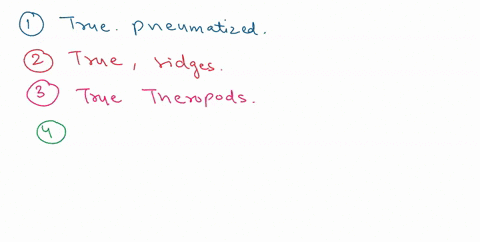 ① True. pneumatized.
② True, ridges.
③ True Theropods.
④